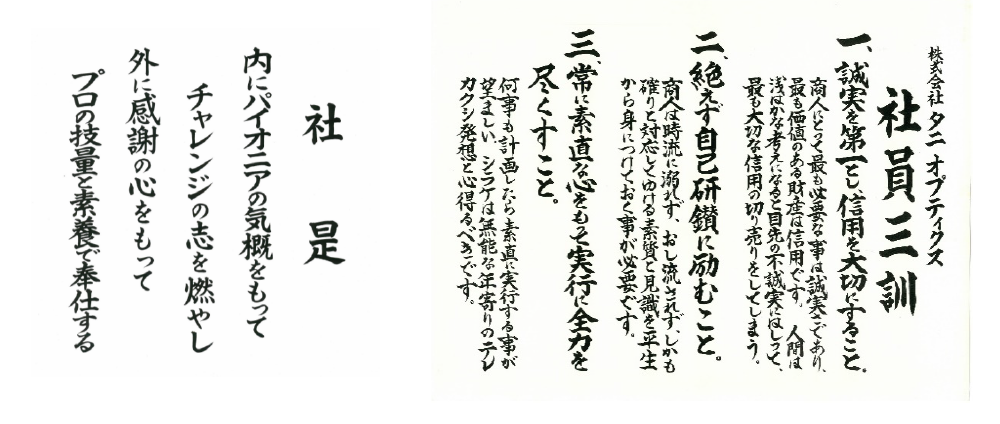 社是
内にパイオニアの気概をもって
チャレンジの志を燃やし
外に感謝の心をもって
プロの技量と素養で奉仕する
株式会社 タニ オプティクス
社員三訓
一、誠実を第一とし、信用を大切にすること。
商人にとって最も必要な事は誠実さであり、
最も価値のある財産は信用です。 人間は
浅はかな考えになると目先の不誠実にはしって、
最も大切な信用の切り売りをしてしまう。
二、絶えず自己研鑚に励むこと。
商人は時流に溺れず、おし流されず、しかも
確りと対応してゆける素質と見識を平生
から身につけておく事が必要です。
三、常に素直な心をもって実行に全力を
尽くすこと。
何事も計画したら素直に実行する事が
望ましい シラケは無能な年寄りのテレ
カクシ発想と心得るべきです。